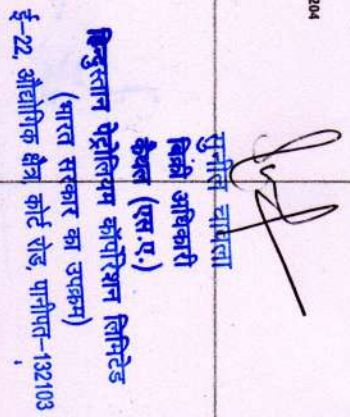 204
सुनील चावला
बिक्री अधिकारी
कैथल (एस.ए.)
हिन्दुस्तान पेट्रोलियम कॉर्पोरेशन लिमिटेड
(भारत सरकार का उपक्रम)
ई-22, औद्योगिक क्षेत्र, कोर्ट रोड, पानीपत-132103